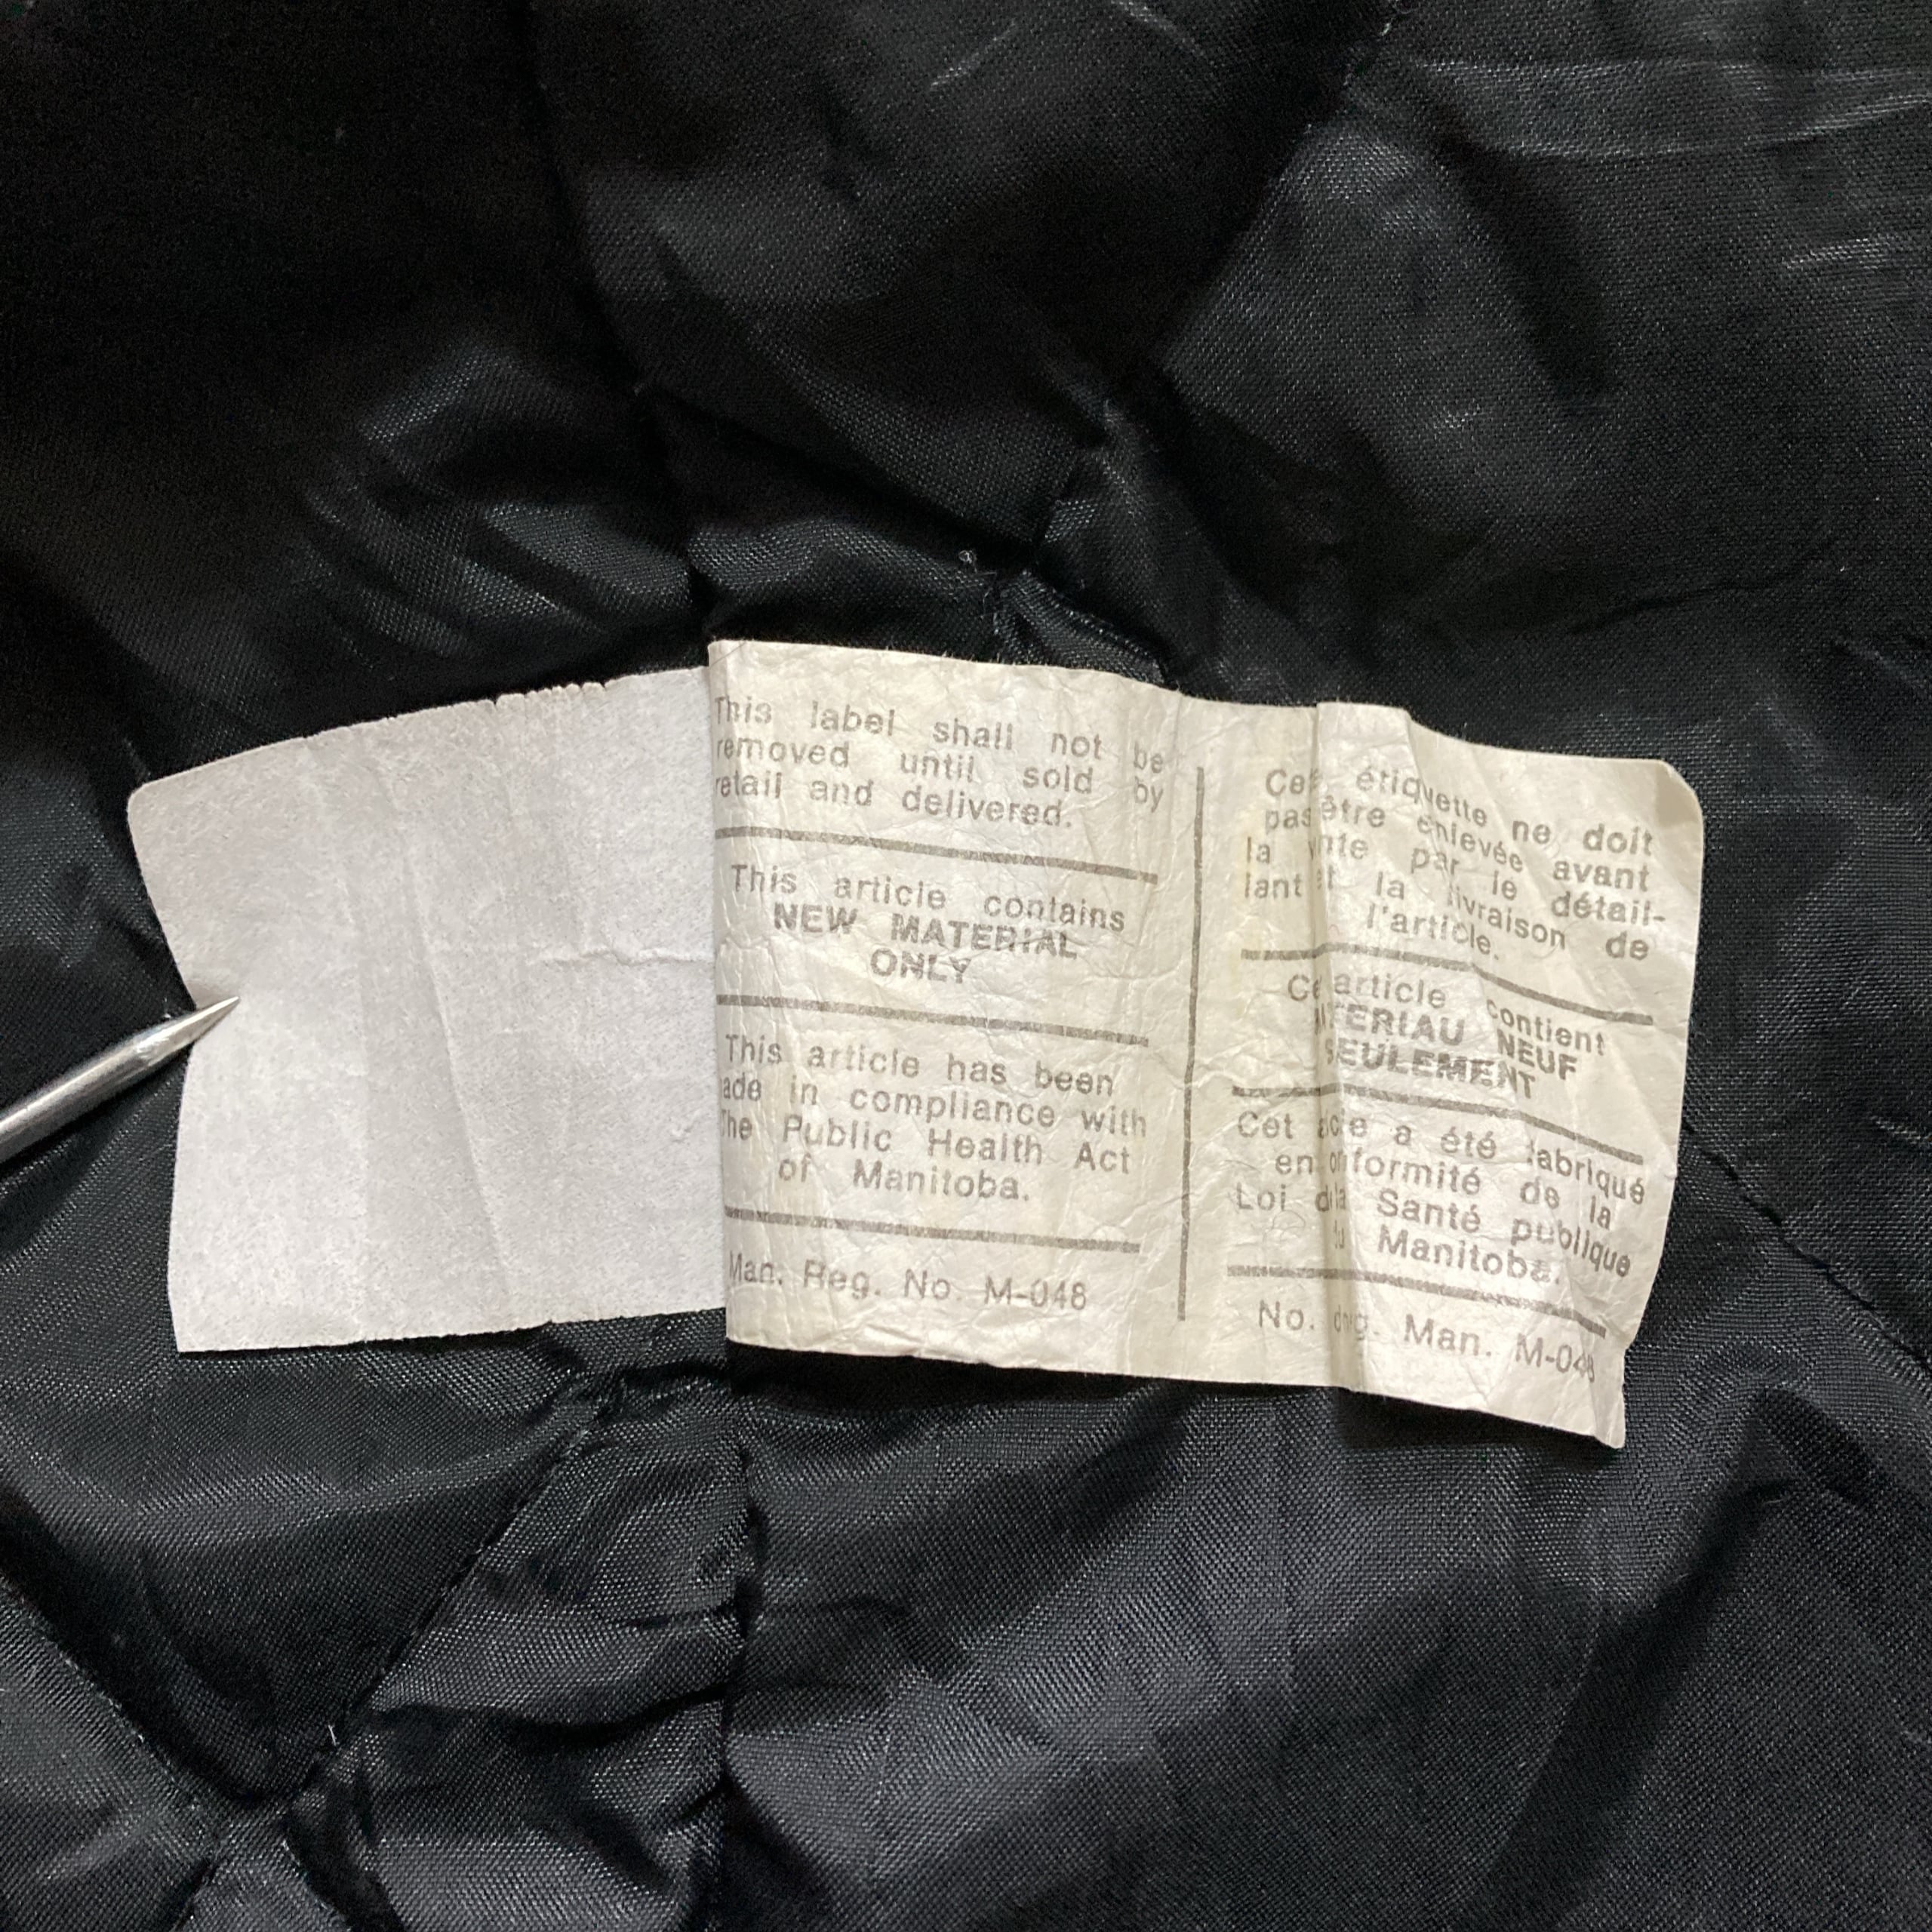 This label shall not be
removed until sold by
retail and delivered.
This article contains
NEW MATERIAL
ONLY
This article has been
ade in compliance with
The Public Health Act
of Manitoba.
Man. Reg. No. M-048
étiquette ne doit
pas être enlevée avant
la par le détail-
lant la livraison de
l'article.
article contient
NEUF
SEULEMENT
Cet a été fabriqué
en de la
Loi Santé publique
Manitoba.
No. Man. M-048